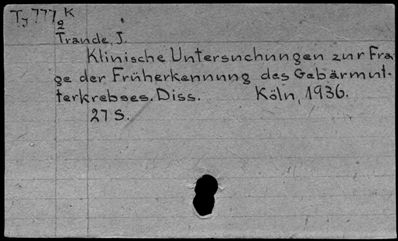 Ty 777 K
9
Trande, J.
Klinische Untersuchungen zur Fra
ge der Früherkennung des Gebärmut-
terkrebses. Diss. Köln, 1936.
27 S.